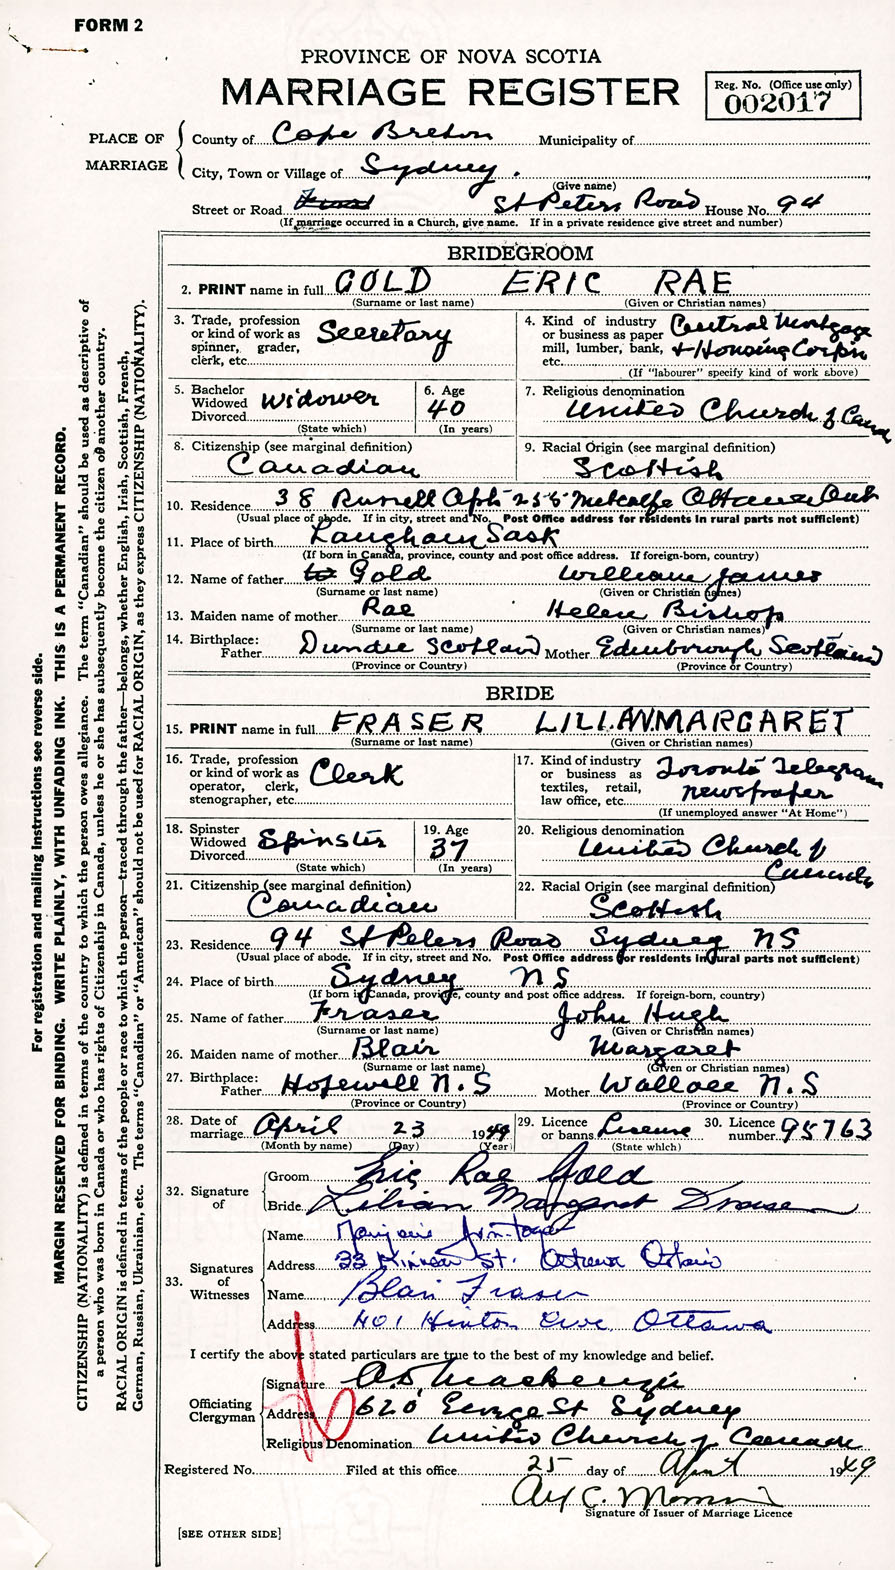 FORM 2
PROVINCE OF NOVA SCOTIA
MARRIAGE REGISTER
Reg. No. (Office use only)
002017
PLACE OF MARRIAGE
County of Cape Breton Municipality of
City, Town or Village of Sydney.
(Give name)
Street or Road St Peters Road House No. 94
(If marriage occurred in a Church, give name. If in a private residence give street and number)
BRIDEGROOM
2. PRINT name in full GOLD ERIC RAE
(Surname or last name) (Given or Christian names)
3. Trade, profession or kind of work as spinner, grader, clerk, etc. Secretary
4. Kind of industry or business as paper mill, lumber, bank, etc. Central Mortgage + Housing Corp'n
(If "labourer" specify kind of work above)
5. Bachelor Widowed Divorced Widower
(State which)
6. Age 40
(In years)
7. Religious denomination United Church of Cand
8. Citizenship (see marginal definition)
Canadian
9. Racial Origin (see marginal definition)
Scottish
10. Residence 38 Russell Apts 255 Metcalfe Ottawa Ont
(Usual place of abode. If in city, street and No. Post Office address for residents in rural parts not sufficient)
11. Place of birth Langham Sask
(If born in Canada, province, county and post office address. If foreign-born, country)
12. Name of father Gold William James
(Surname or last name) (Given or Christian names)
13. Maiden name of mother Rae Helen Bishop
(Surname or last name) (Given or Christian names)
14. Birthplace: Father Dundee Scotland Mother Edinborough Scotland
(Province or Country) (Province or Country)
BRIDE
15. PRINT name in full FRASER LILIAN MARGARET
(Surname or last name) (Given or Christian names)
16. Trade, profession or kind of work as operator, clerk, stenographer, etc. Clerk
17. Kind of industry or business as textiles, retail, law office, etc. Toronto Telegram newspaper
(If unemployed answer "At Home")
18. Spinster Widowed Divorced Spinster
(State which)
19. Age 37
(In years)
20. Religious denomination
United Church of Canada
21. Citizenship (see marginal definition)
Canadian
22. Racial Origin (see marginal definition)
Scottish
23. Residence 94 St Peters Road Sydney NS
(Usual place of abode. If in city, street and No. Post Office address for residents in rural parts not sufficient)
24. Place of birth Sydney NS
(If born in Canada, province, county and post office address. If foreign-born, country)
25. Name of father Fraser John Hugh
(Surname or last name) (Given or Christian names)
26. Maiden name of mother Blair Margaret
(Surname or last name) (Given or Christian names)
27. Birthplace: Father Hopewell N.S Mother Wallace N.S
(Province or Country) (Province or Country)
28. Date of marriage April 23 1949
(Month by name) (Day) (Year)
29. Licence or banns License
(State which)
30. Licence number 95763
32. Signature of
Groom Eric Rae Gold
Bride Lilian Margaret Fraser
33. Signatures of Witnesses
Name Marjorie
Address 33 St. Ottawa Ontario
Name Blair Fraser
Address 401 Hinton Ave. Ottawa
I certify the above stated particulars are true to the best of my knowledge and belief.
Officiating Clergyman
Signature A.D. Mackenzie
Address 620 George St Sydney
Religious Denomination United Church of Canada
Registered No. Filed at this office 25 day of April 1949
Alex C.
Signature of Issuer of Marriage Licence
[SEE OTHER SIDE]
For registration and mailing instructions see reverse side.
MARGIN RESERVED FOR BINDING. WRITE PLAINLY, WITH UNFADING INK. THIS IS A PERMANENT RECORD.
CITIZENSHIP (NATIONALITY) is defined in terms of the country to which the person owes allegiance. The term "Canadian" should be used as descriptive of
a person who was born in Canada or who has rights of Citizenship in Canada, unless he or she has subsequently become the citizen of another country.
RACIAL ORIGIN is defined in terms of the people or race to which the person—traced through the father—belongs, whether English, Irish, Scottish, French,
German, Russian, Ukrainian, etc. The terms "Canadian" or "American" should not be used for RACIAL ORIGIN, as they express CITIZENSHIP (NATIONALITY).